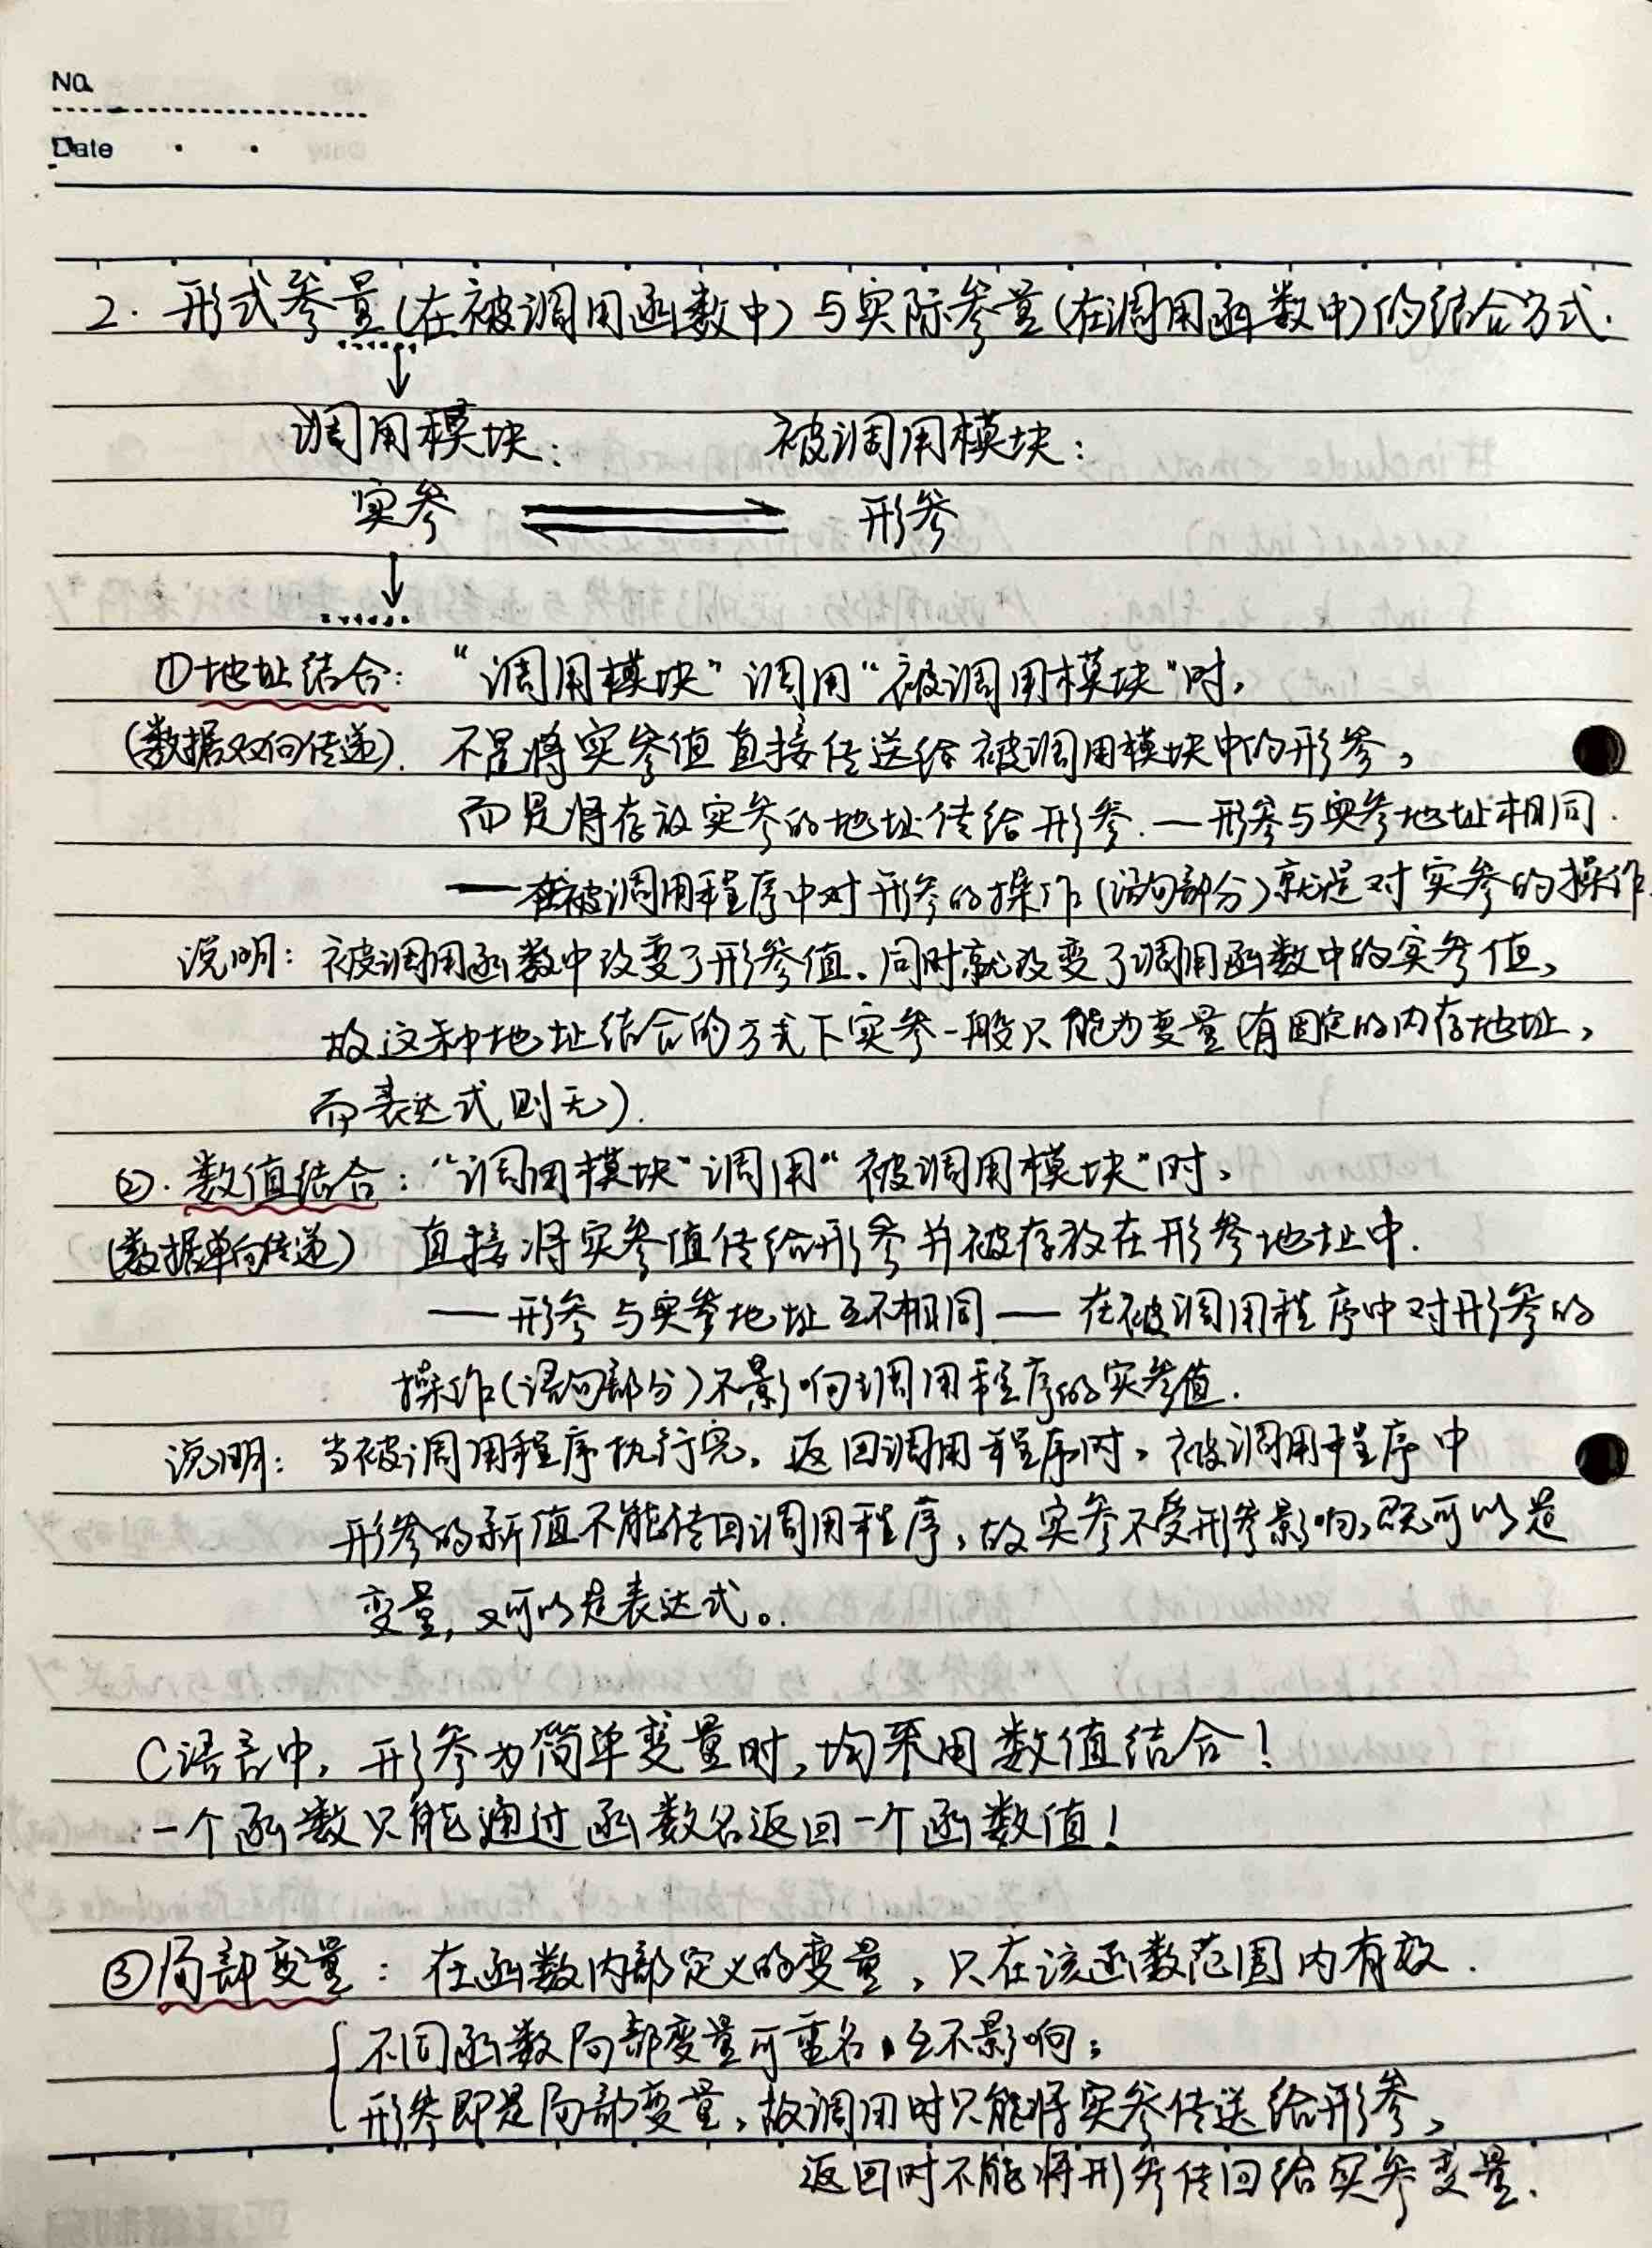 No.
Date
2. 形式参量(在被调用函数中)与实际参量(在调用函数中)的结合方式.
调用模块: 被调用模块:
实参 形参
①地址结合: “调用模块”调用“被调用模块”时,
(数据双向传递). 不是将实参值直接传送给被调用模块中的形参,
而是将存放实参的地址传给形参.—形参与实参地址相同.
——在被调用程序中对形参的操作(语句部分)就是对实参的操作.
说明: 被调用函数中改变了形参值、同时就改变了调用函数中的实参值,
故这种地址结合的方式下实参一般只能为变量(有固定的内存地址,
而表达式则无).
②. 数值结合: “调用模块”调用“被调用模块”时,
(数据单向传递) 直接将实参值传给形参并被存放在形参地址中.
——形参与实参地址互不相同——在被调用程序中对形参的
操作(语句部分)不影响调用程序的实参值.
说明: 当被调用程序执行完, 返回调用程序时, 被调用程序中
形参的新值不能传回调用程序, 故实参不受形参影响, 既可以是
变量, 又可以是表达式。
C语言中, 形参为简单变量时, 均采用数值结合!
一个函数只能通过函数名返回一个函数值!
③局部变量: 在函数内部定义的变量, 只在该函数范围内有效.
不同函数局部变量可重名, 互不影响;
形参即是局部变量, 故调用时只能将实参传送给形参,
返回时不能将形参传回给实参变量.